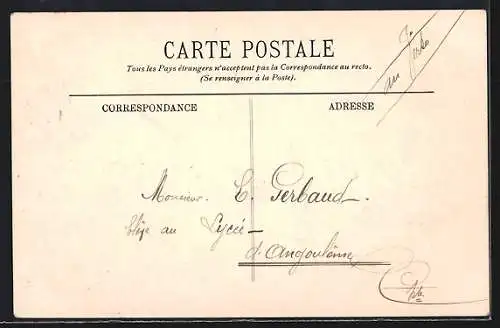 CARTE POSTALE
Tous les Pays étrangers n'acceptent pas la Correspondance au recto.
(Se renseigner à la Poste).
CORRESPONDANCE
ADRESSE
Monsieur. E. Gerbaud.
Elève au Lycée
d'Angoulême